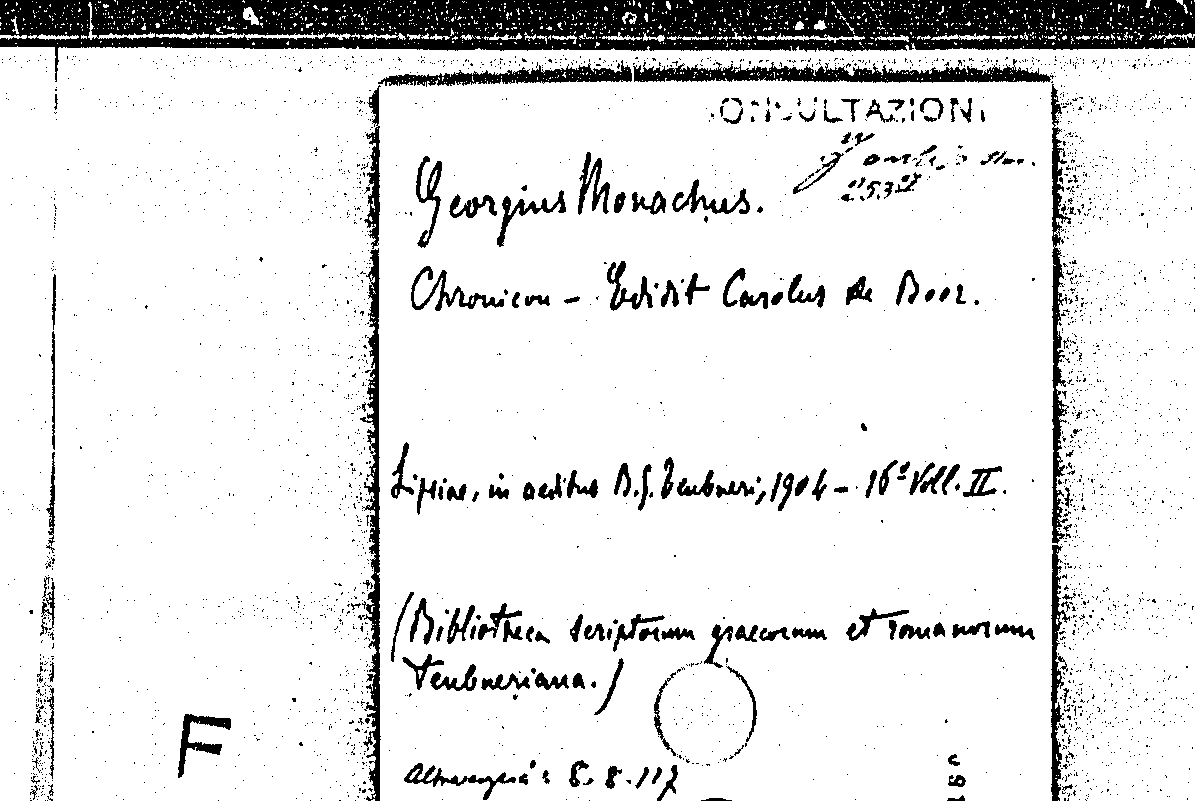 CONSULTAZIONE
253
Georgius Monachus.
Chronicon – Edidit Carolus de Boor.
Lipsiae, in aedibus B.G. Teubneri, 1904 – 16° Voll. II.
(Bibliotheca scriptorum graecorum et romanorum
Teubneriana.)
F
8. 8. 117
16°